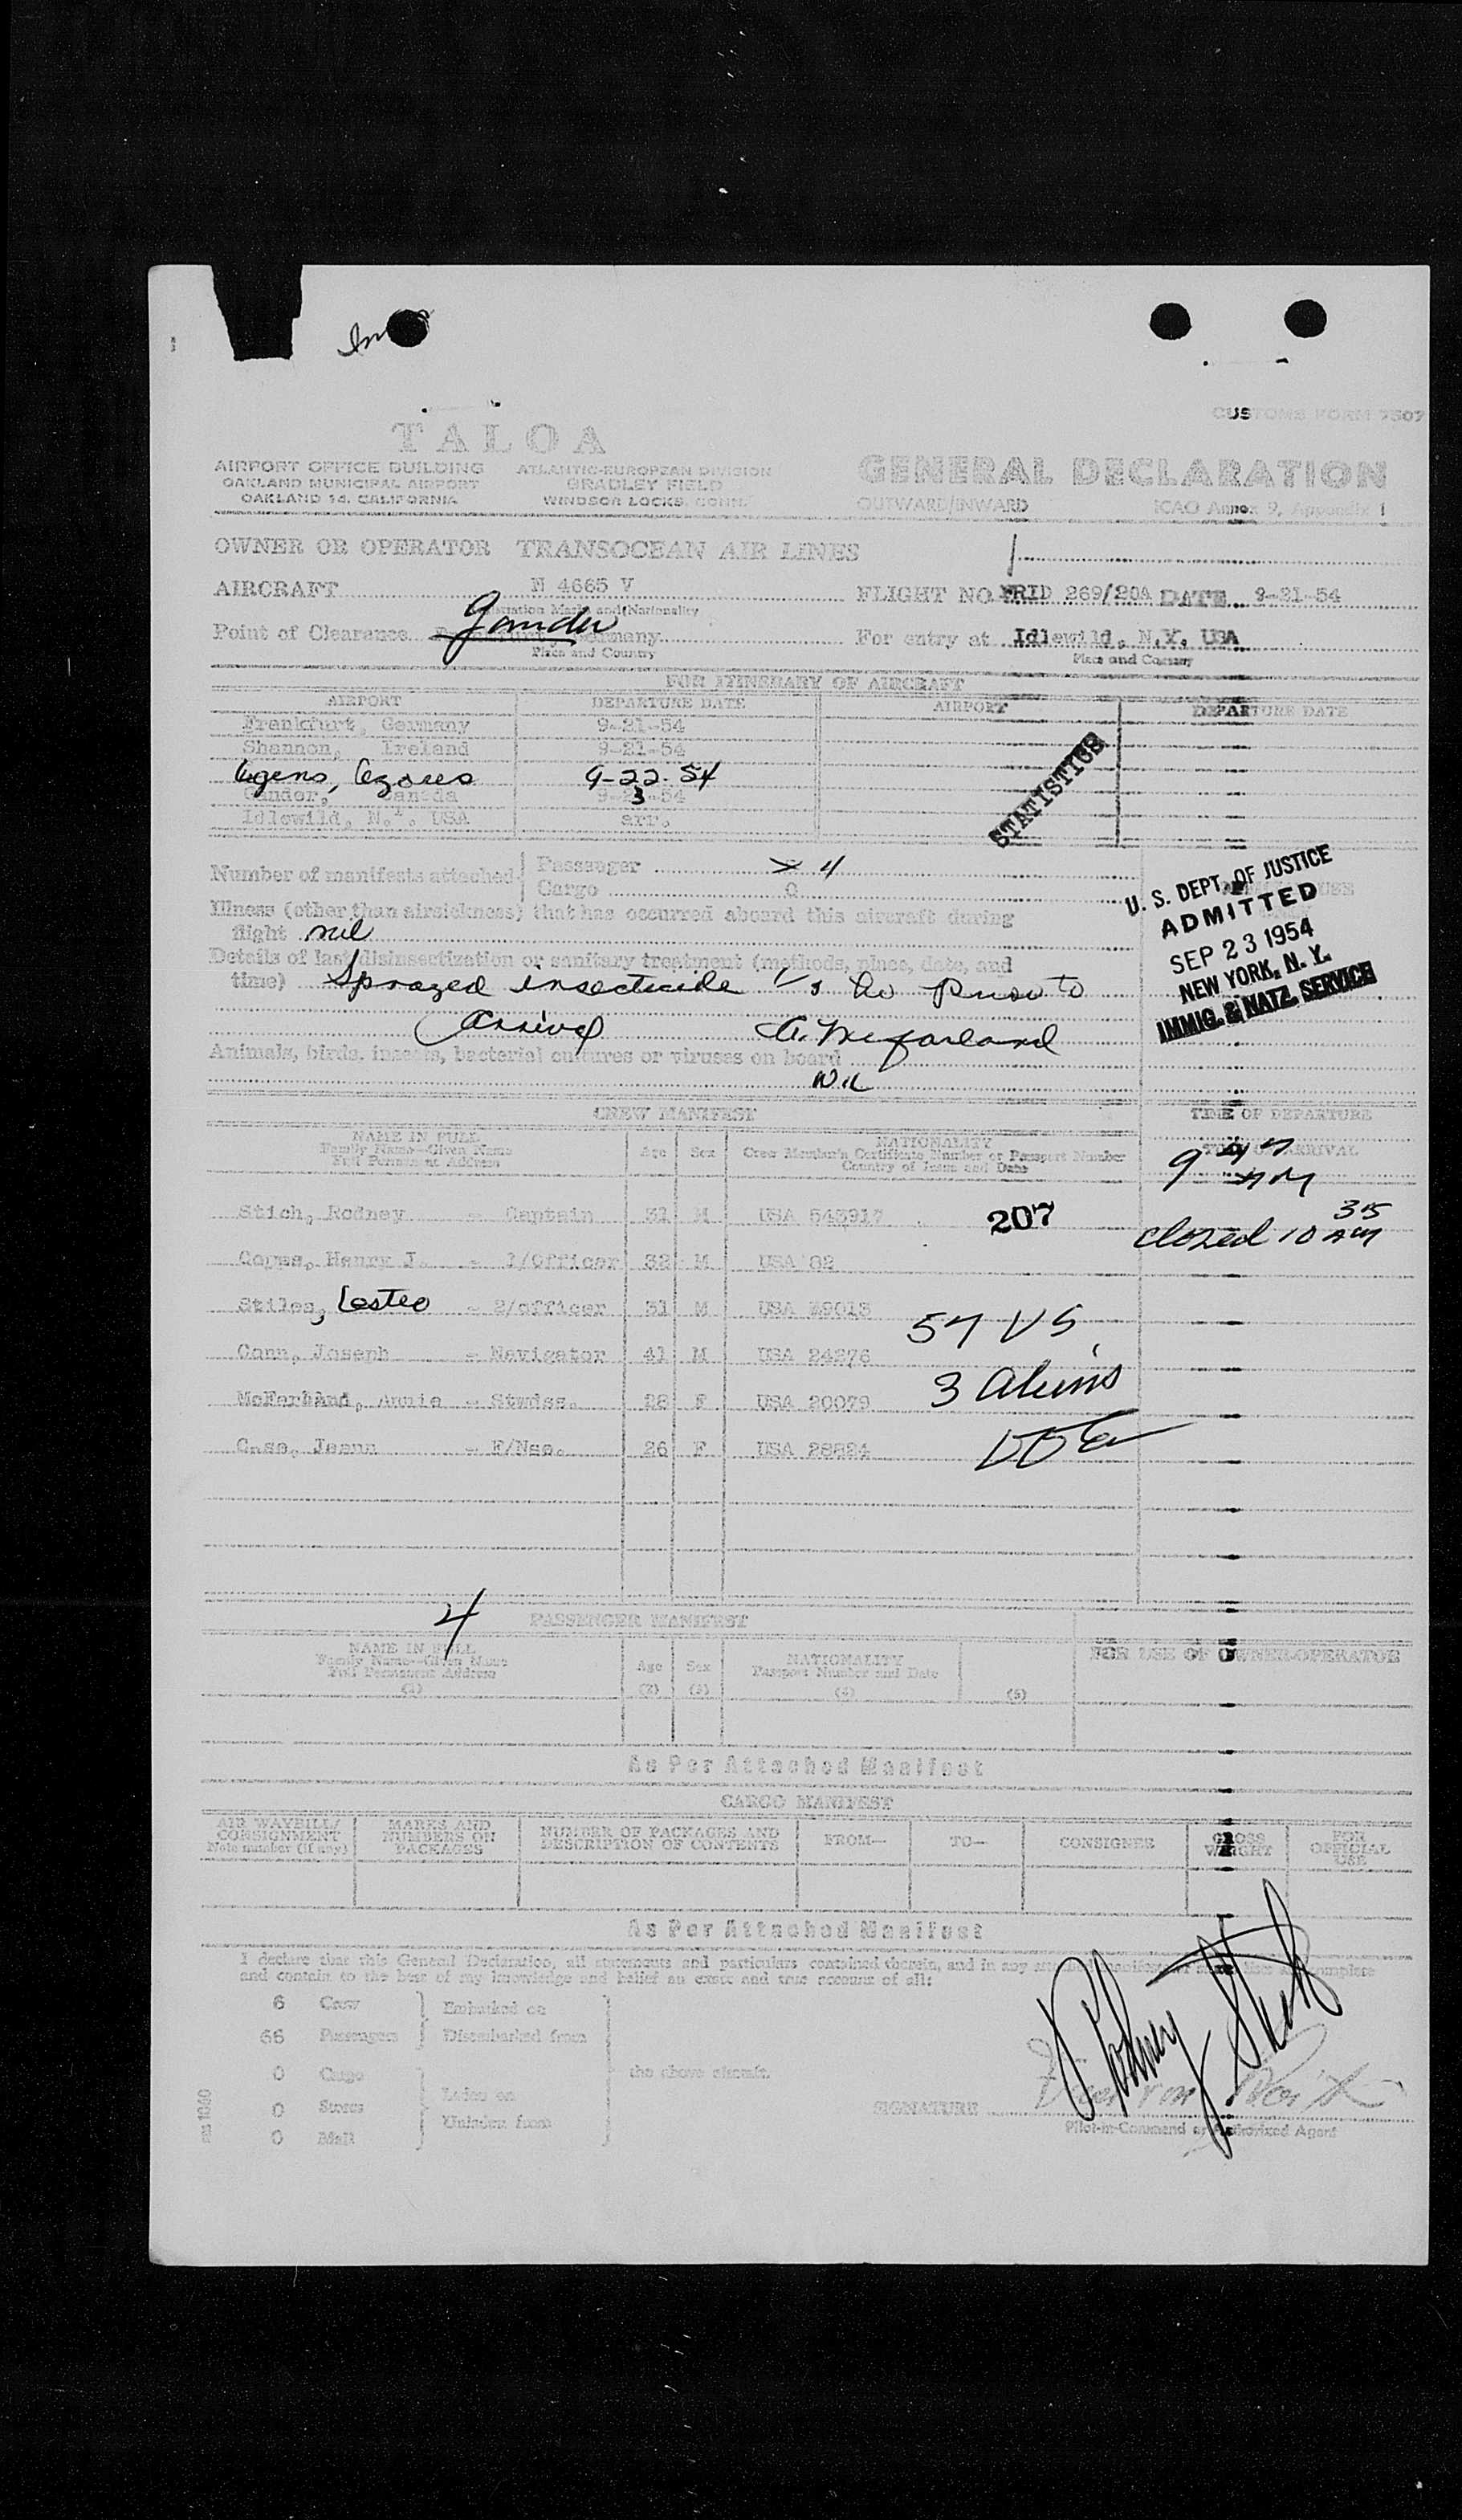 CUSTOMS FORM 7507
TALOA
AIRPORT OFFICE BUILDING
OAKLAND MUNICIPAL AIRPORT
OAKLAND 14, CALIFORNIA
ATLANTIC-EUROPEAN DIVISION
BRADLEY FIELD
WINDSOR LOCKS, CONN.
GENERAL DECLARATION
OUTWARD/INWARD ICAO Annex 9, Appendix 1
OWNER OR OPERATOR TRANSOCEAN AIR LINES
AIRCRAFT N 4665 V FLIGHT NO FRID 269/20A DATE 9-21-54
Registration Marks and Nationality
Point of Clearance Gander Germany For entry at Idlewild, N.Y. USA
Place and Country Place and Country
FOR ITINERARY OF AIRCRAFT
AIRPORT DEPARTURE DATE AIRPORT DEPARTURE DATE
Frankfurt, Germany 9-21-54
Shannon, Ireland 9-21-54
Azores 9-22-54
Gander, Canada 9-23-54
Idlewild, N.Y. USA arr.
STATISTICS
Number of manifests attached Passenger 4
Cargo 0
U. S. DEPT. OF JUSTICE
ADMITTED
SEP 23 1954
NEW YORK, N. Y.
IMMIG. & NATZ. SERVICE
Illness (other than airsickness) that has occurred aboard this aircraft during
flight nil
Details of last disinsectization or sanitary treatment (methods, place, date, and
time) Sprayed insecticide prior to
arrival A. McFarland
Animals, birds, insects, bacterial cultures or viruses on board
Nil
CREW MANIFEST TIME OF DEPARTURE
NAME IN FULL
Family Name—Given Name
Full Permanent Address
Age Sex
NATIONALITY
Crew Member's Certificate Number or Passport Number
Country of Issue and Date
TIME OF ARRIVAL
9 AM
Stich, Rodney - Captain 31 M USA 543917 207
closed 10 35 AM
Henry J. - 1/Officer 32 M USA 82
Stiles, Lester - 2/officer 31 M USA
57 US
Conn, Joseph - Navigator 41 M USA 24276
3 Aliens
McFarland, Annie - Stwdss. 28 F USA 20079
Jeann - F/Nse. 26 F USA 28824
4
PASSENGER MANIFEST
NAME IN FULL
Family Name—Given Name
Full Permanent Address
(1)
Age
(2)
Sex
(3)
NATIONALITY
Passport Number and Date
(4)
(5)
FOR USE OF OWNER-OPERATOR
As Per Attached Manifest
CARGO MANIFEST
AIR WAYBILL/
CONSIGNMENT
Note number (if any)
MARKS AND
NUMBERS ON
PACKAGES
NUMBER OF PACKAGES AND
DESCRIPTION OF CONTENTS
FROM— TO— CONSIGNEE
GROSS
WEIGHT
FOR
OFFICIAL
USE
As Per Attached Manifest
I declare that this General Declaration, all statements and particulars contained therein, and in any complete
and contain to the best of my knowledge and belief an exact and true account of all:
6 Crew Embarked on
66 Passengers Disembarked from
0 Cargo the above aircraft.
Laden on
0 Stores
Unladen from
0 Mail
SIGNATURE Rodney Stich
Pilot-in-Command or Authorized Agent